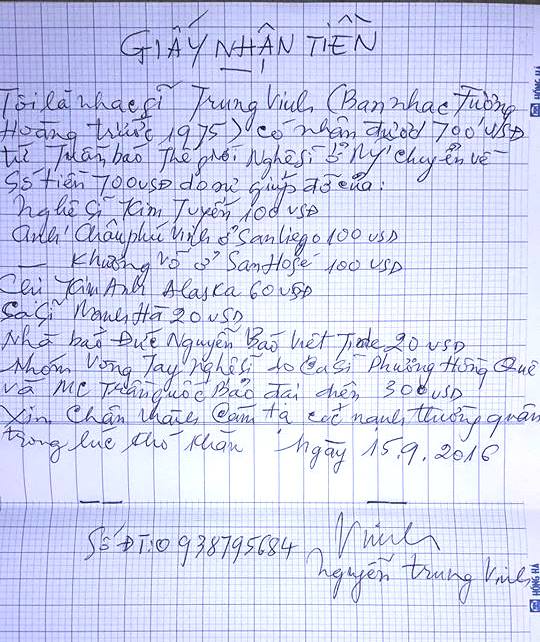 GIẤY NHẬN TIỀN
Tôi là nhạc sĩ Trung Vinh (Ban nhạc Tường
Hoàng trước 1975) có nhân được 700 USD
từ Tuần báo Thế giới Nghệ sĩ ở Mỹ chuyển về
Số tiền 700 USD do sự giúp đỡ của:
Nghệ sĩ Kim Tuyến 100 USD
Anh Châu phú Vinh ở San Diego 100 USD
— Khương Võ ở San Hosé 100 USD
Chị Kim Anh Alaska 60 USD
Ca sĩ Mạnh Hà 20 USD
Nhà báo Đức Nguyễn Báo Việt Tide 20 USD
Nhóm Vòng Tay nghệ sĩ do Ca sĩ Phương Hồng Quế
và MC Trần quốc Bảo đại diện 300 USD
Xin Chân thành Cảm tạ các mạnh thường quân
trong lúc khó khăn Ngày 15.9.2016
Số ĐT: 0938795684
Vinh
Nguyễn trung Vinh
HỒNG HÀ
HỒNG HÀ